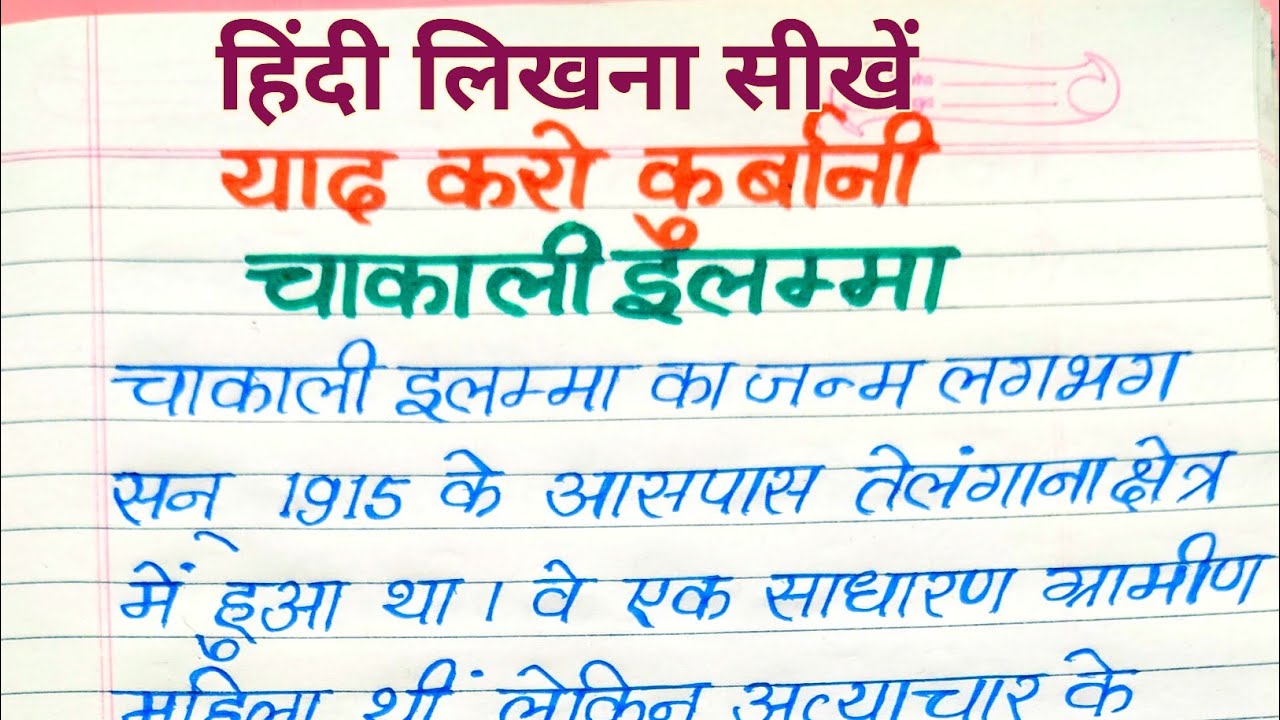 हिंदी लिखना सीखें
याद करो कुर्बानी
चाकाली इलम्मा
चाकाली इलम्मा का जन्म लगभग
सन् 1915 के आसपास तेलंगाना क्षेत्र
में हुआ था। वे एक साधारण ग्रामीण
महिला थीं लेकिन अत्याचार के